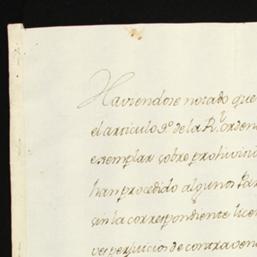 Haviendose notado que
el articulo 9º de la Rˡ orden
exemplar sobre prohivici
han procedido algunos
sin la correspondiente lice
perjuicios de contraven